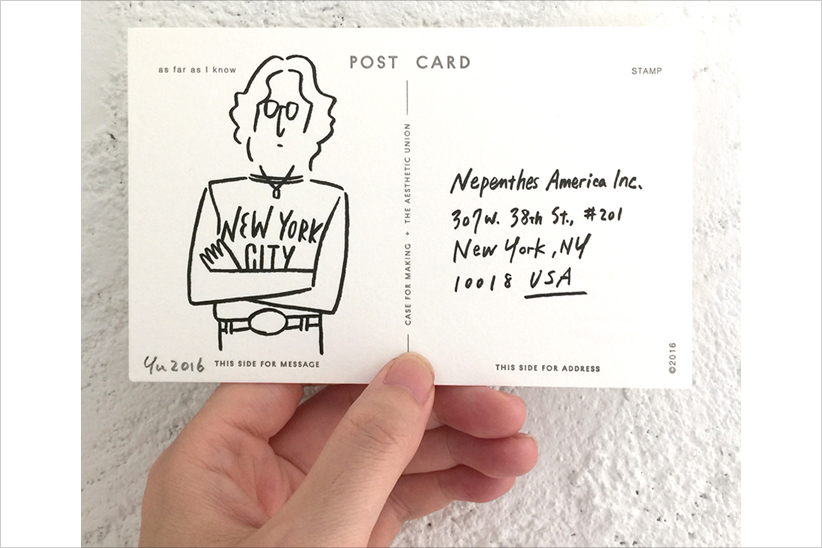 as far as I know
POST CARD
STAMP
NEW YORK
CITY
CASE FOR MAKING + THE AESTHETIC UNION
Nepenthes America Inc.
307 W. 38th St., #201
New York, NY
10018 USA
Yu 2016
THIS SIDE FOR MESSAGE
THIS SIDE FOR ADDRESS
©2016